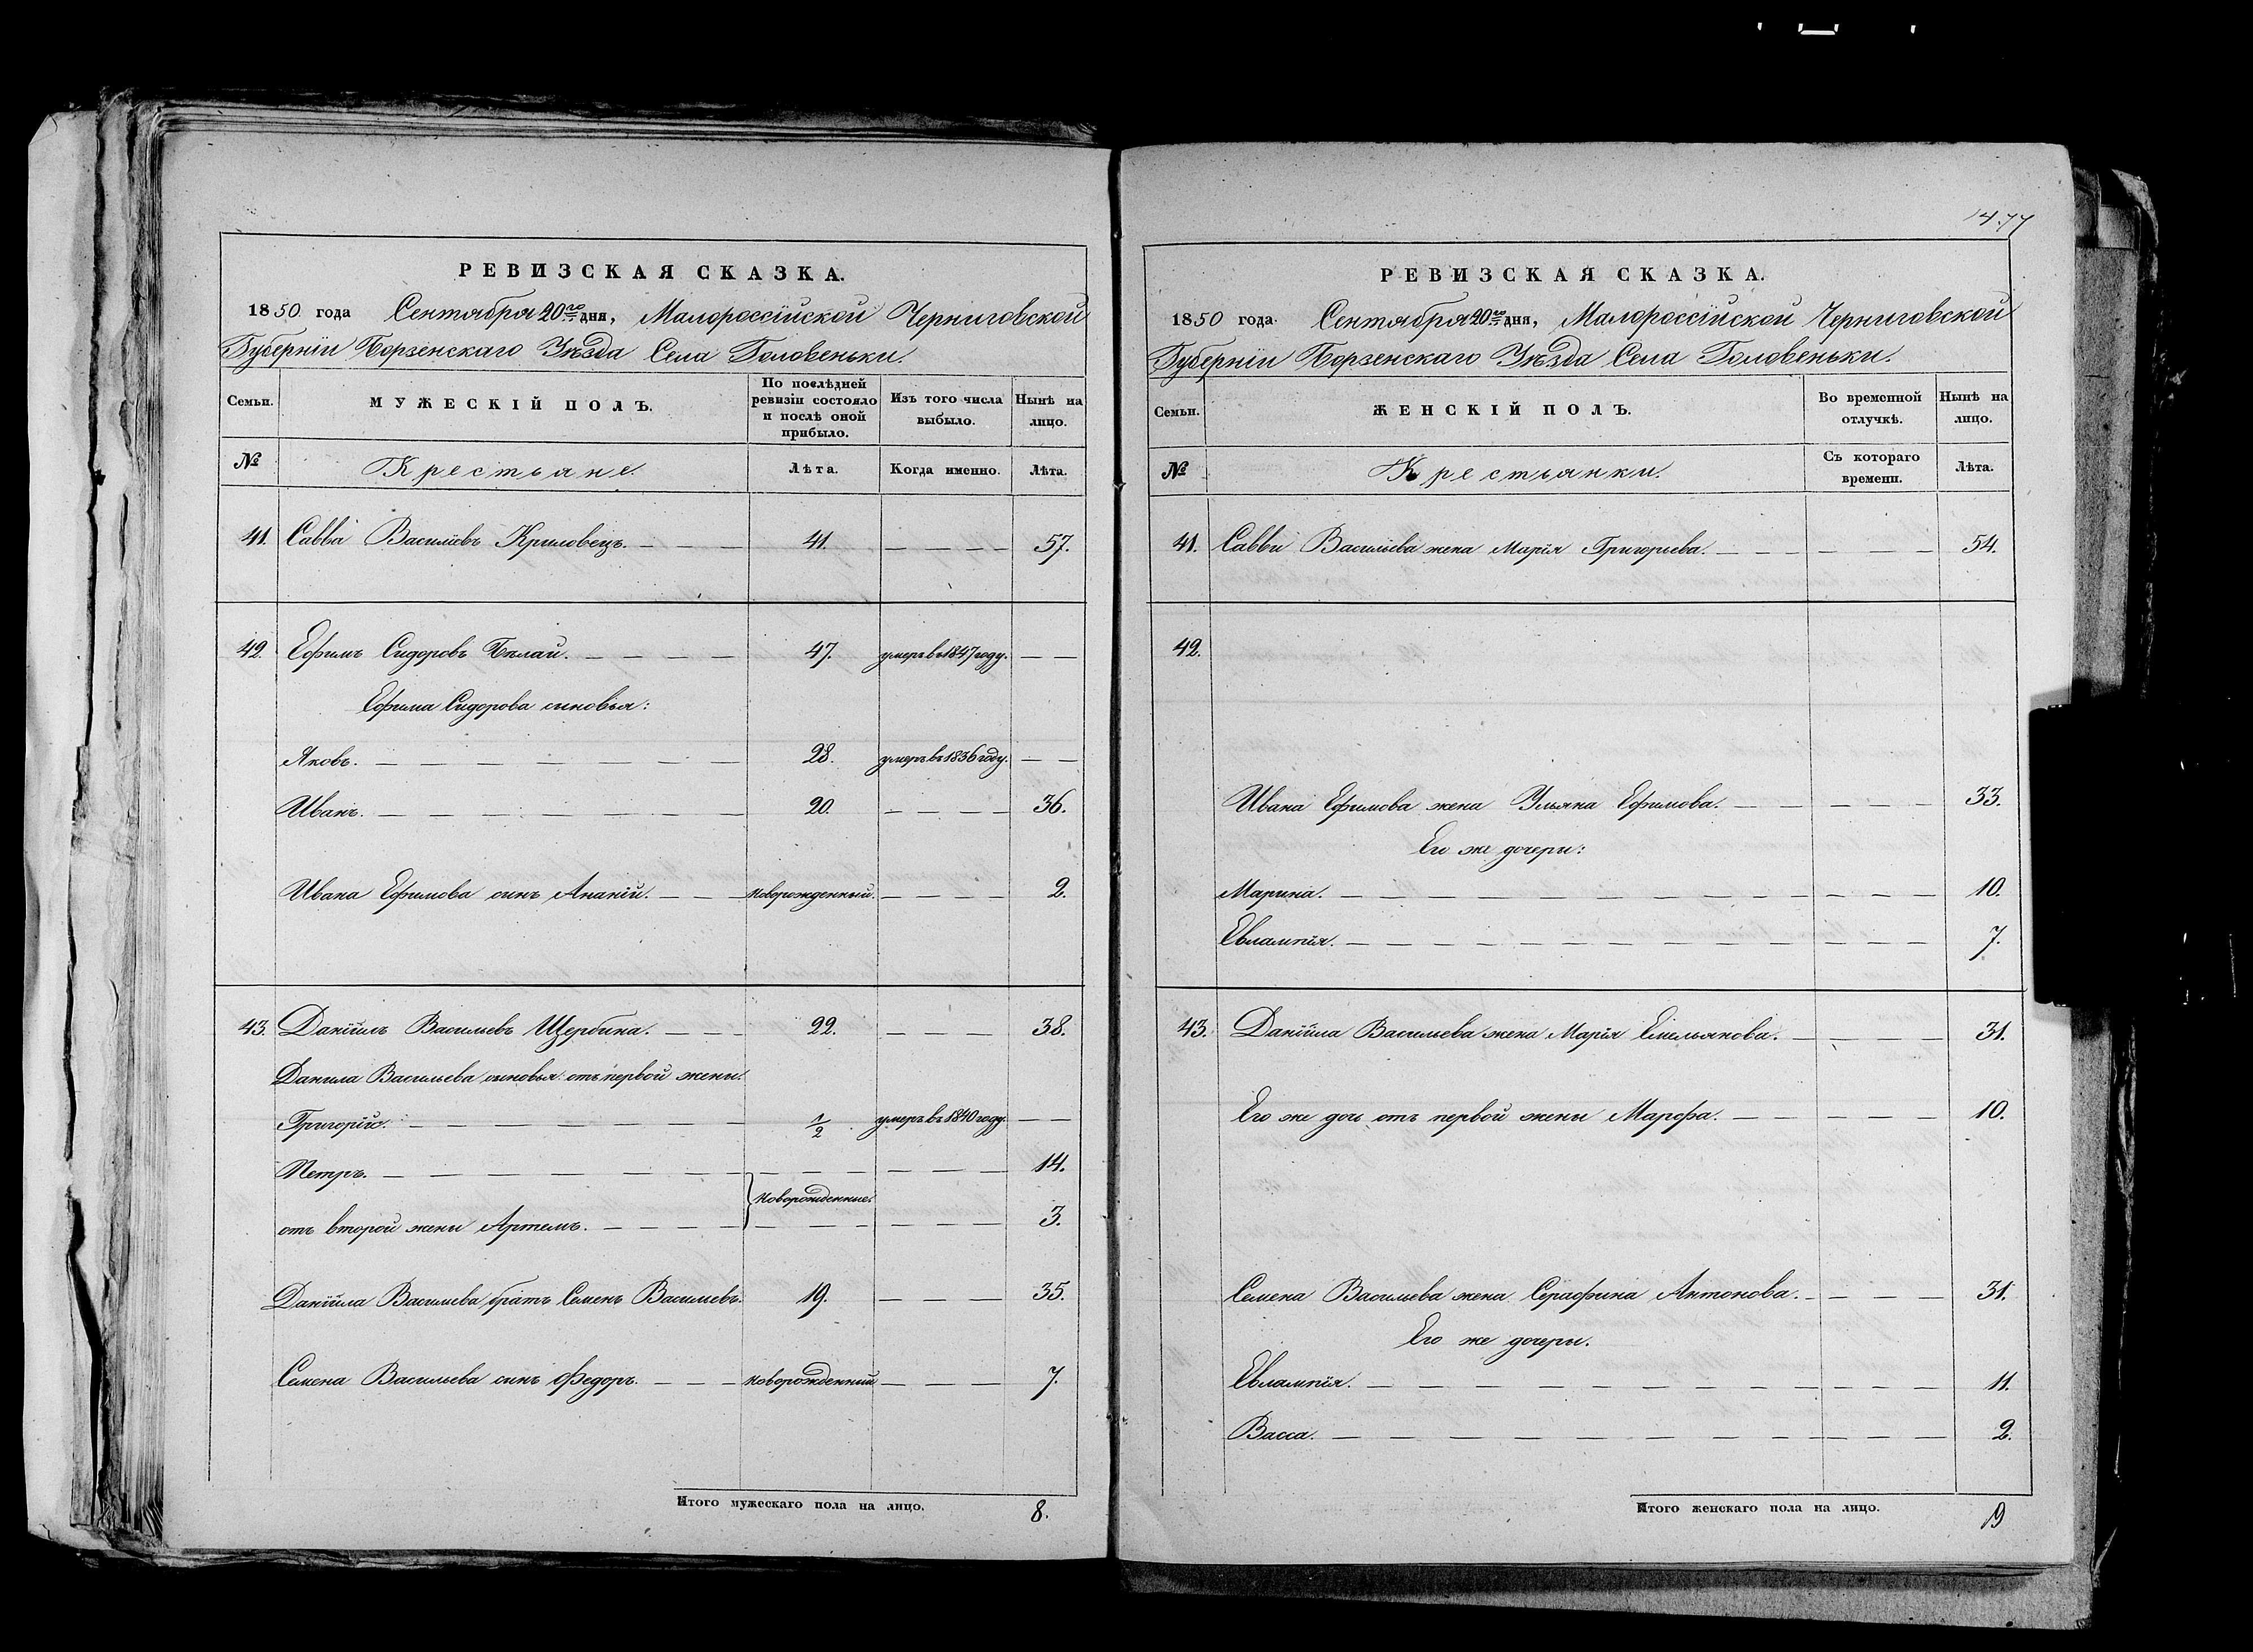 РЕВИЗСКАЯ СКАЗКА.
1850 года Сентября 20го дня, Малороссійской Черниговской
Губерніи Борзенскаго Уѣзда Села Головеньки.
Семьи.
МУЖЕСКІЙ ПОЛЪ.
По послѣдней ревизіи состояло и послѣ оной прибыло.
Изъ того числа выбыло.
Нынѣ на лицо.
№ Крестьяне. Лѣта. Когда именно. Лѣта.
41. Савва Василіевъ Криловецъ. 41. 57.
42. Ефимъ Сидоровъ Бѣлай. 47. умеръ въ 1847 году.
Ефима Сидорова сыновья:
Яковъ. 28. умеръ въ 1836 году.
Иванъ. 20. 36.
Ивана Ефимова сынъ Ананій. новорожденный. 2.
43. Даніилъ Васильевъ Щербина. 22. 38.
Данила Васильева сыновья: отъ первой жены.
Григорій. 1/2 умеръ въ 1840 году.
Петръ. 14.
новорожденные.
отъ второй жены Артемъ. 3.
Даніила Васильева братъ Семенъ Васильевъ. 19. 35.
Семена Васильева сынъ Федоръ. новорожденный 7.
Итого мужескаго пола на лицо. 8.
1477
РЕВИЗСКАЯ СКАЗКА.
1850 года. Сентября 20го дня, Малороссійской Черниговской
Губерніи Борзенскаго Уѣзда Села Головеньки.
Семьи.
ЖЕНСКІЙ ПОЛЪ.
Во временной отлучкѣ.
Нынѣ на лицо.
№ Крестьянки. Съ котораго времени. Лѣта.
41. Саввы Васильева жена Марія Григорьева. 54.
42.
Ивана Ефимова жена Ульяна Ефимова. 33.
Его же дочери:
Марина. 10.
Евлампія. 7.
43. Даніила Васильева жена Марія Емельянова. 31.
Его же дочь отъ первой жены Марфа. 10.
Семена Васильева жена Серафина Антонова. 31.
Его же дочеры.
Евлампія. 11.
Васса. 2.
Итого женскаго пола на лицо. 9